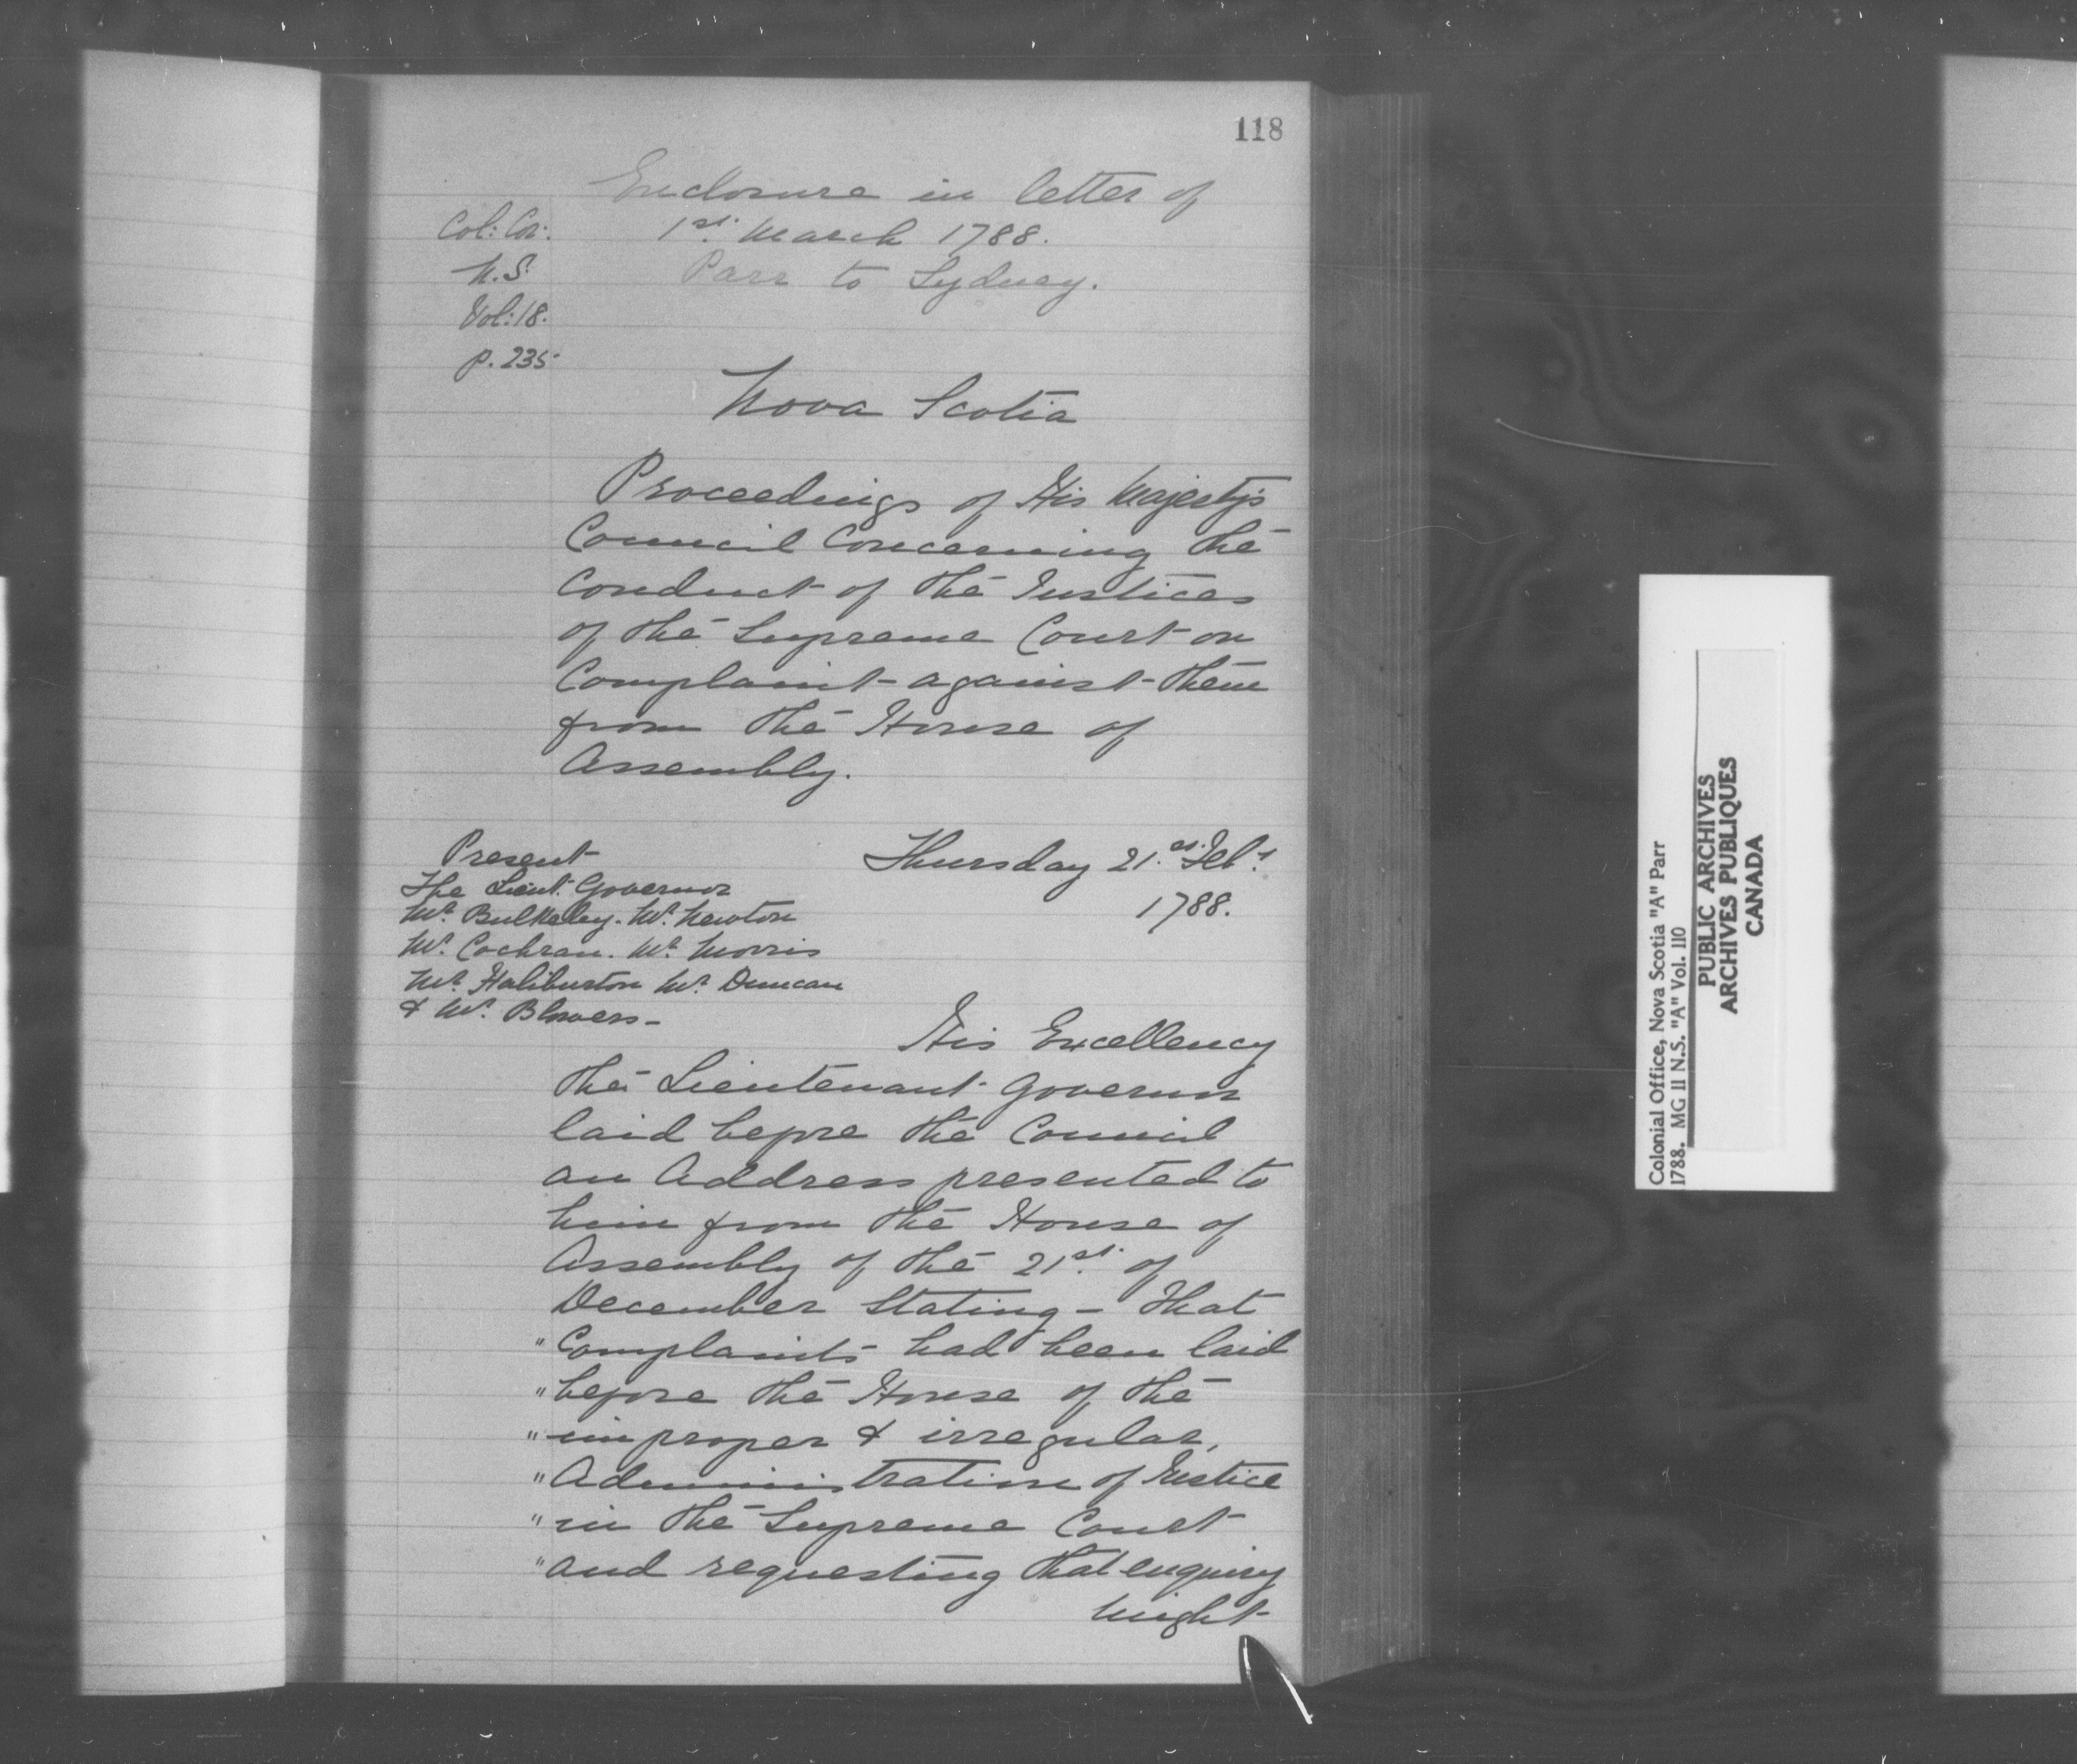 118
Enclosure in letter of
1st. March 1788.
Parr to Sydney.
Col: Cor:
N.S.
Vol: 18.
p. 235
Nova Scotia
Proceedings of His Majesty's
Council Concerning the
Conduct of the Justices
of the Supreme Court on
Complaint against them
from the House of
Assembly.
Present
The Lieut. Governor
Mr. Bulkeley. Mr. Newton
Mr. Cochran. Mr. Morris
Mr. Haliburton Mr. Duncan
& Mr. Blowers -
Thursday 21.st Feby.
1788.
His Excellency
the Lieutenant Governor
laid before the Council
an Address presented to
him from the House of
Assembly of the 21st. of
December Stating - That
"Complaints had been laid
"before the House of the
"improper & irregular,
"Administration of Justice
"in the Supreme Court
"and requesting that enquiry
might
Colonial Office, Nova Scotia "A" Parr
1788. MG 11 N.S. "A" Vol. 110
PUBLIC ARCHIVES
ARCHIVES PUBLIQUES
CANADA